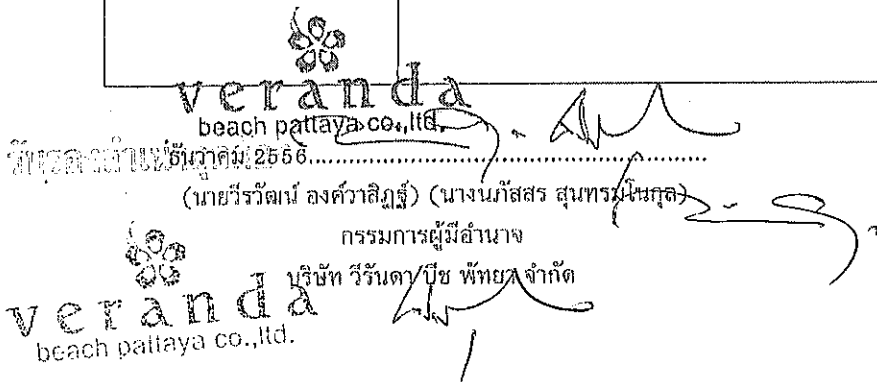 veranda
beach pattaya co.,ltd.
ธันวาคม 2556
(นายวีรวัฒน์ องค์วาสิฏฐ์) (นางนภัสสร สุนทรมโนกุล)
กรรมการผู้มีอำนาจ
บริษัท วีรันดา บีช พัทยา จำกัด
veranda
beach pattaya co.,ltd.